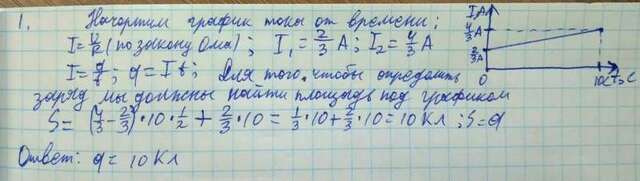 1. Начертим график тока от времени:
I=U/R (по закону Ома); I₁=2/3 A; I₂=4/3 A
I=q/t; q=It; Для того, чтобы определить
заряд мы должны найти площадь под графиком
S=(4/3-2/3)·10·1/2+2/3·10=1/3·10+2/3·10=10 Кл; S=q
Ответ: q=10 Кл
I,A
4/3 A
2/3 A
0
10c
t,c